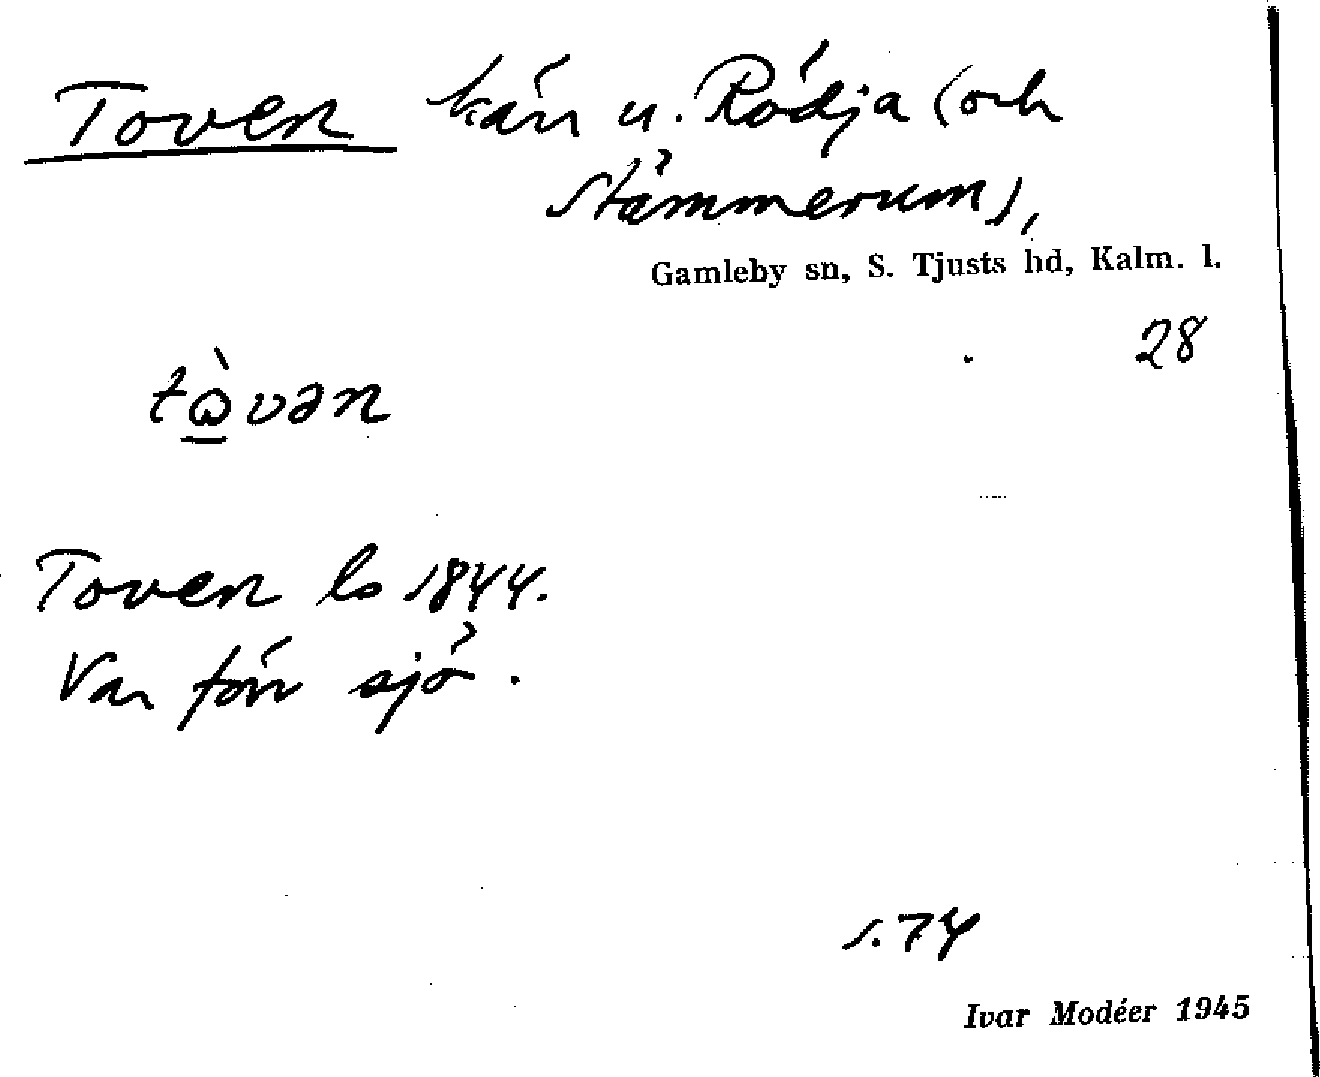 Toven kärr u. Rödja (och
Stämmerum),
Gamleby sn, S. Tjusts hd, Kalm. l.
28
tòvən
Toven ls 1844.
Var förr sjö.
s. 74
Ivar Modéer 1945